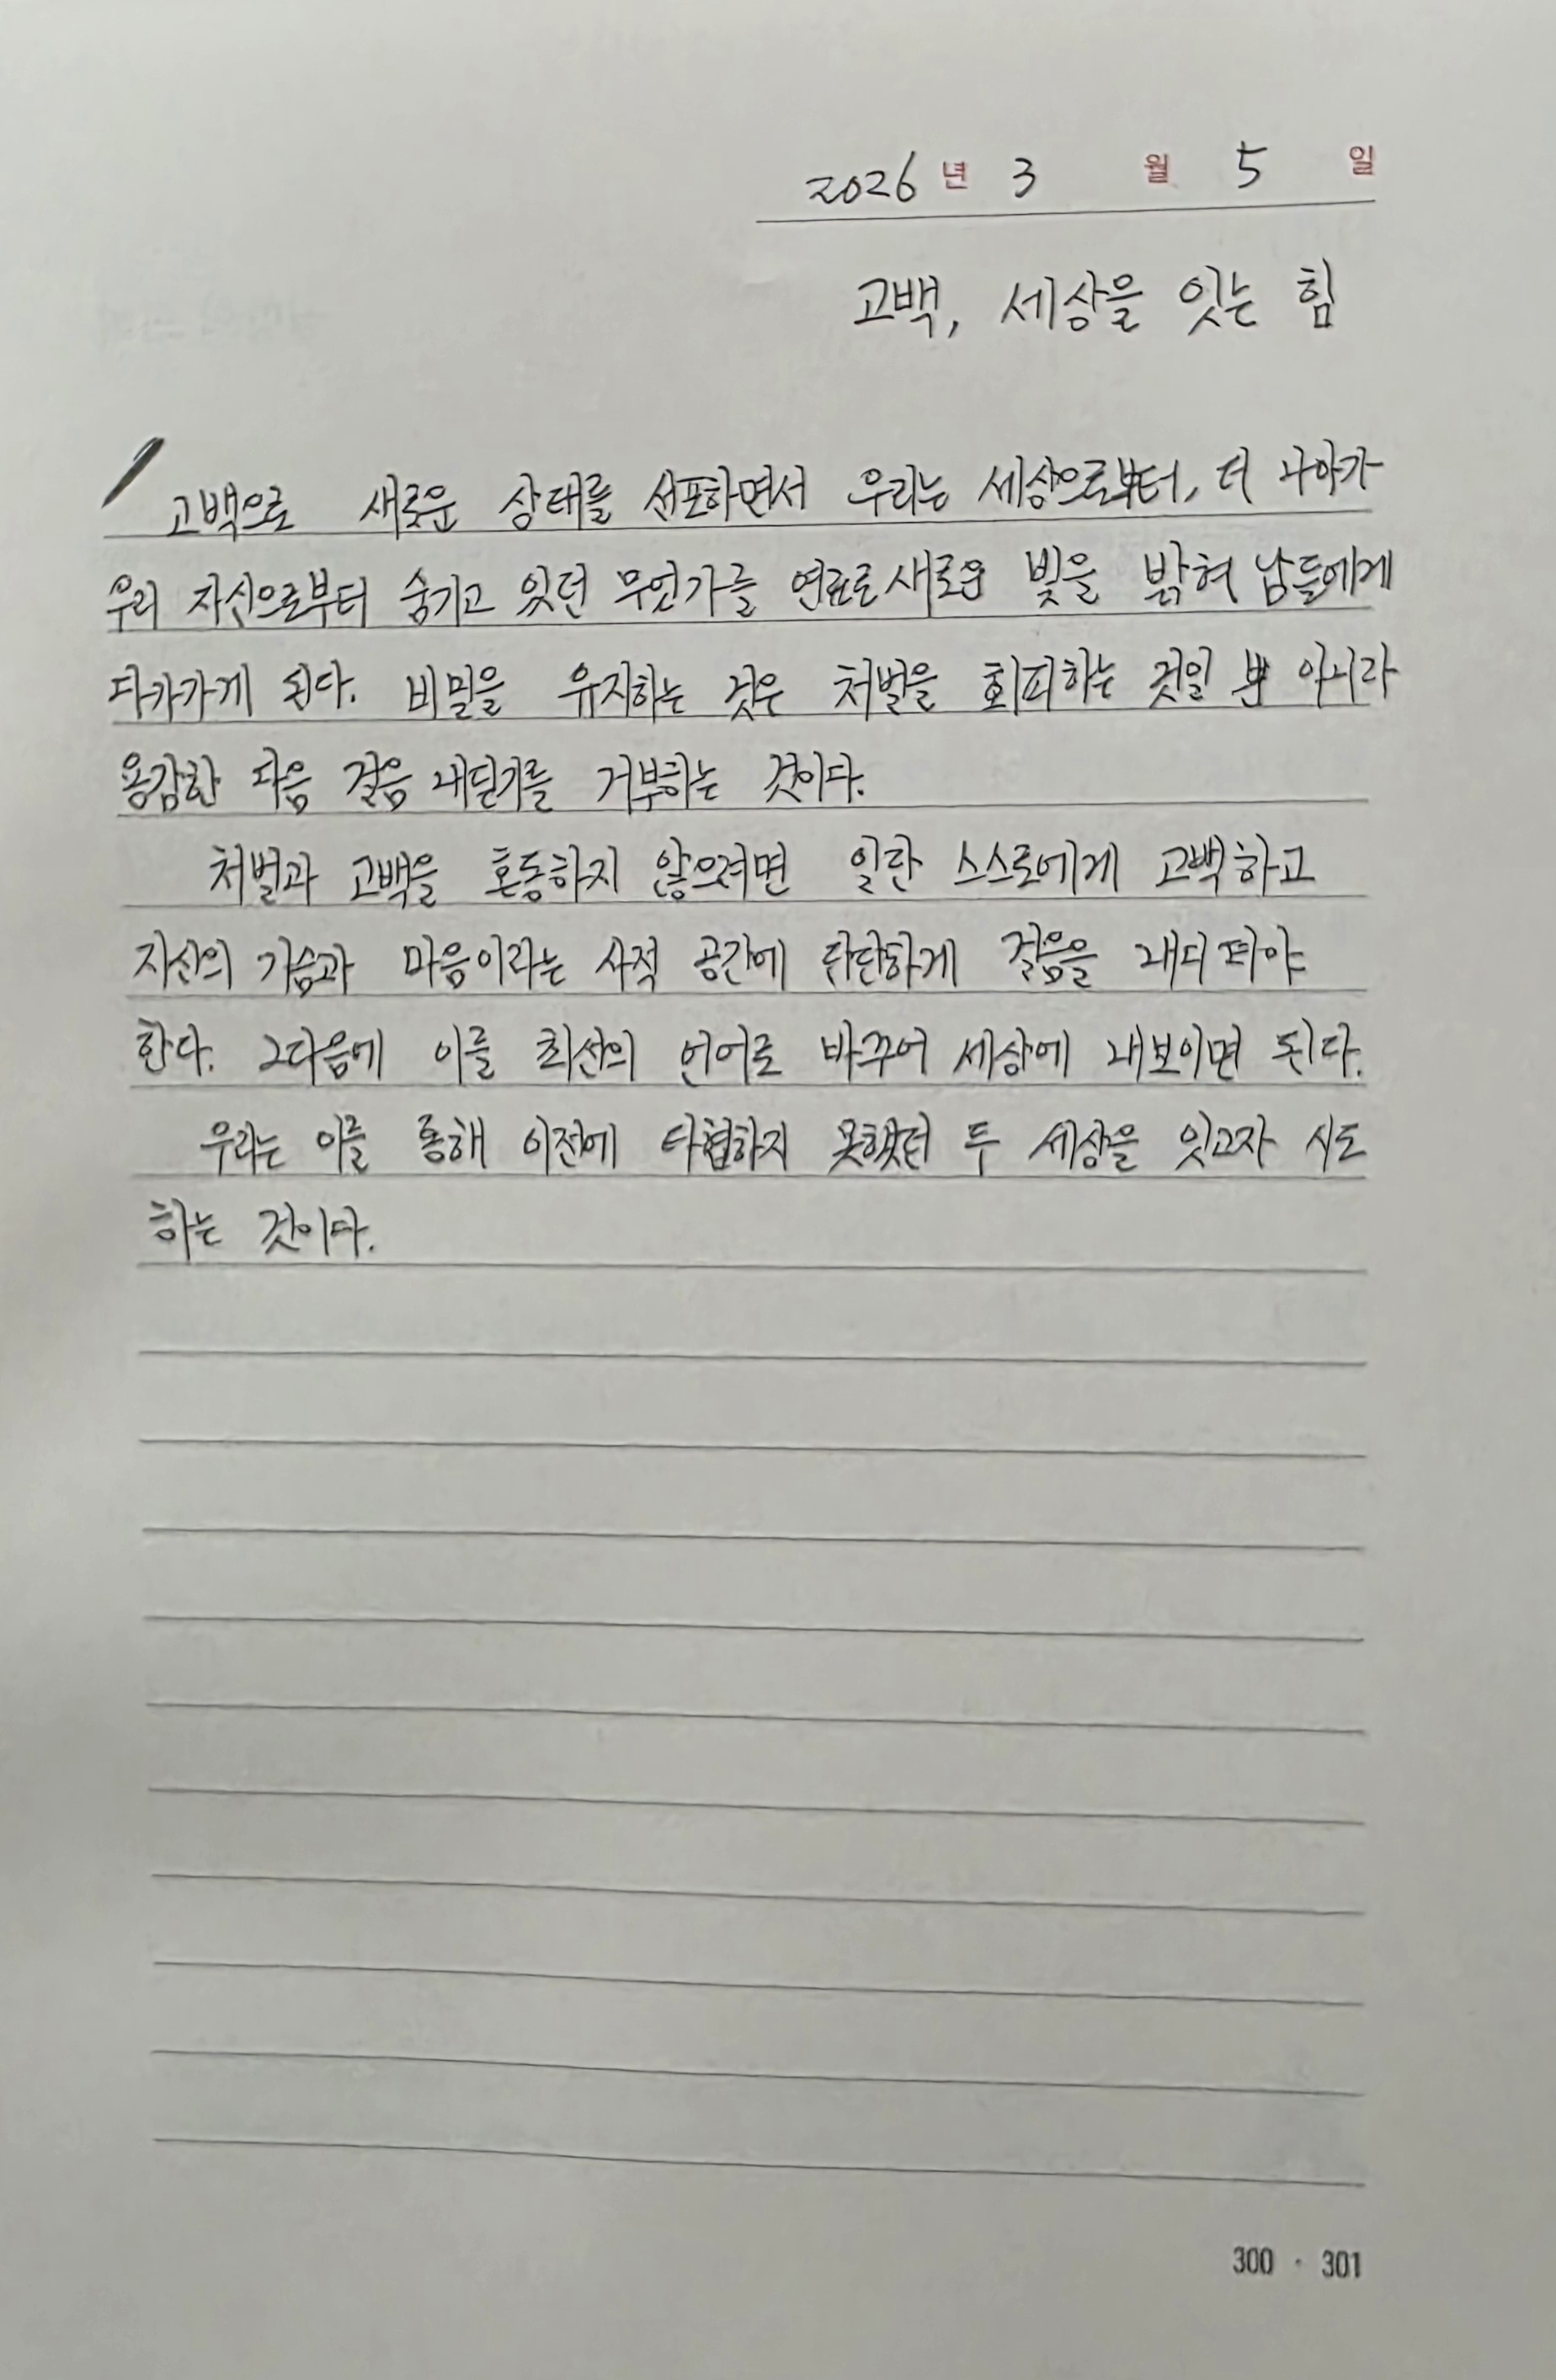 2026 년 3 월 5 일
고백, 세상을 잇는 힘
고백으로 새로운 상태를 선포하면서 우리는 세상으로부터, 더 나아가
우리 자신으로부터 숨기고 있던 무언가를 연료로 새로운 빛을 밝혀 남들에게
다가가게 된다. 비밀을 유지하는 것은 처벌을 회피하는 것일 뿐 아니라
용감한 다음 걸음 내딛기를 거부하는 것이다.
처벌과 고백을 혼동하지 않으려면 일단 스스로에게 고백하고
자신의 가슴과 마음이라는 사적 공간에 단단하게 걸음을 내디뎌야
한다. 그다음에 이를 최선의 언어로 바꾸어 세상에 내보이면 된다.
우리는 이를 통해 이전에 타협하지 못했던 두 세상을 잇고자 시도
하는 것이다.
300 · 301